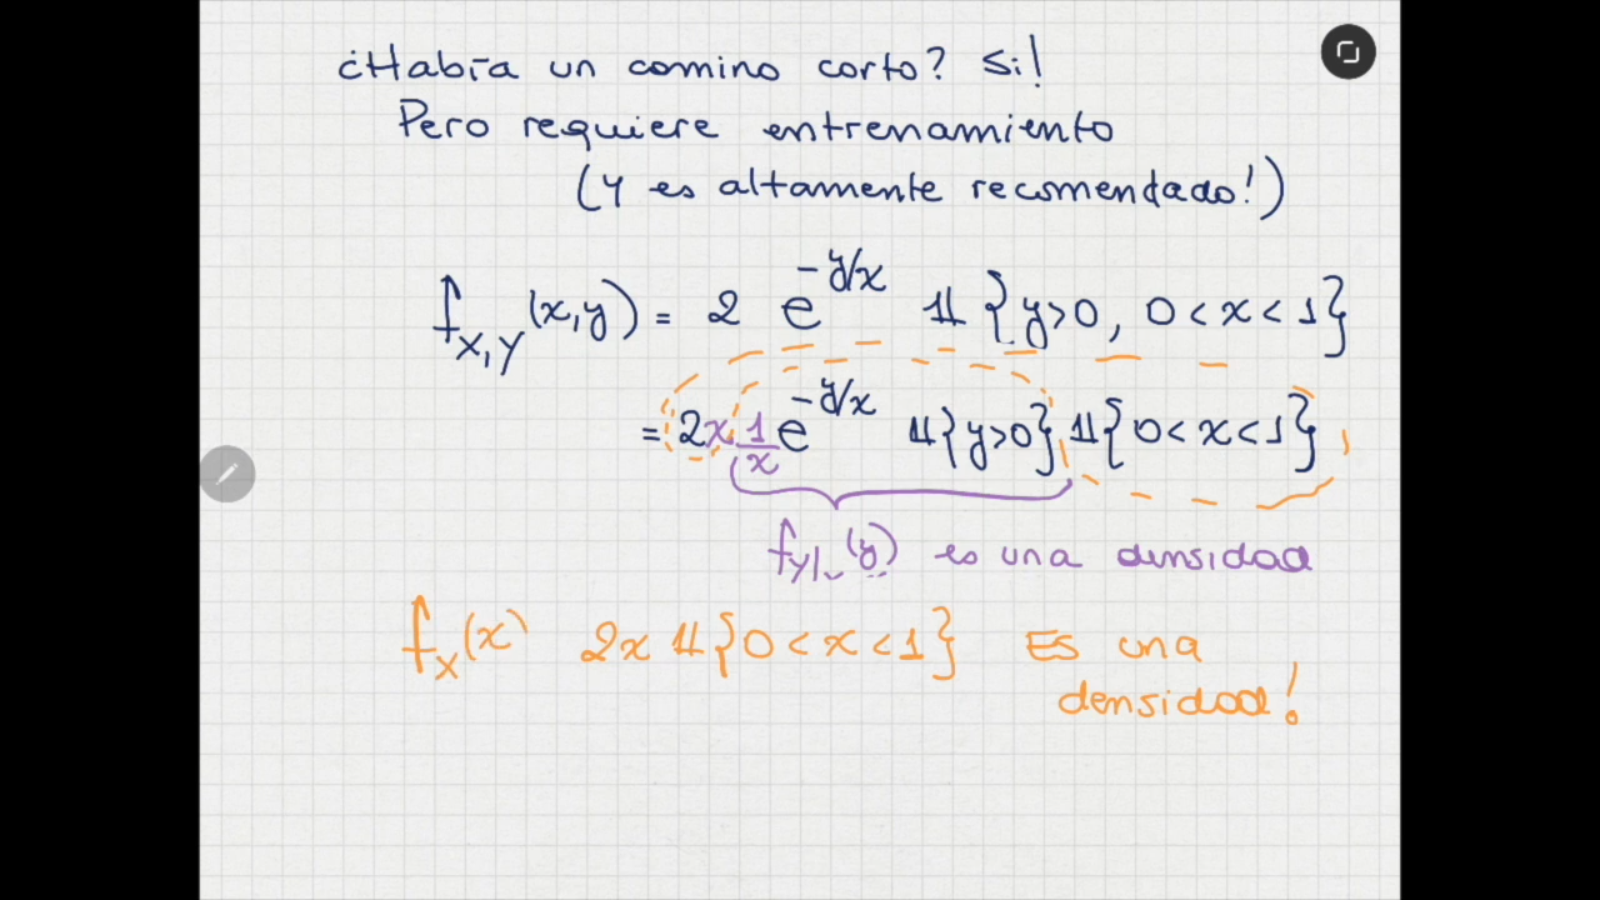 ¿Había un camino corto? Si!
Pero requiere entrenamiento
(Y es altamente recomendado!)
f_{X,Y}(x,y) = 2 e^{-y/x} 𝟙{y>0, 0<x<1}
= 2x 1/x e^{-y/x} 𝟙{y>0} 𝟙{0<x<1}
f_{Y|}(y) es una densidad
f_X(x) 2x 𝟙{0<x<1} Es una
densidad!